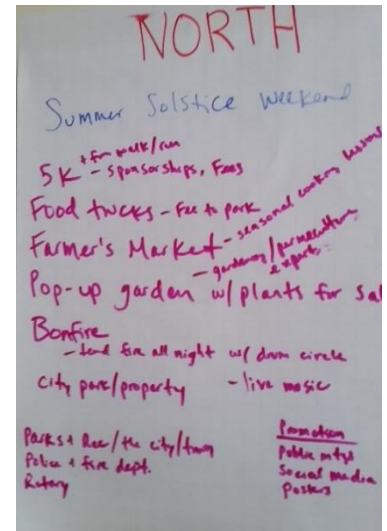 NORTH
Summer Solstice Weekend
5K + fun walk/run
- Sponsorships, Fees
Food trucks - Fee to park
Farmer's Market - seasonal cooking lessons
- gardening/permaculture expert
Pop-up garden w/ plants for sal
Bonfire
- tend fire all night w/ drum circle
City park/property - live music
Parks + Rec/the city/town
Police + fire dept.
Rotary
Promotion
Public mtgs
Social media
Posters